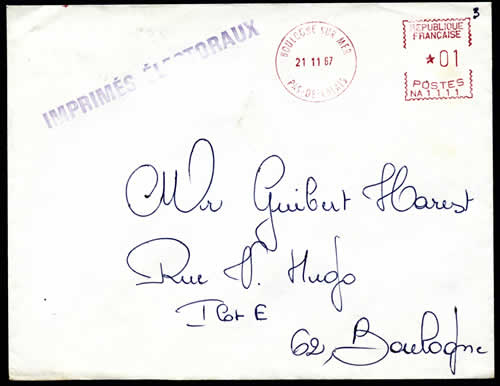 3
IMPRIMÉS ÉLECTORAUX
BOULOGNE SUR MER
21 11 67
PAS-DE-CALAIS
REPUBLIQUE
FRANCAISE
*01
POSTES
NA 1111
Mr Guibert Harest
Rue V. Hugo
Ilot E
62, Boulogne